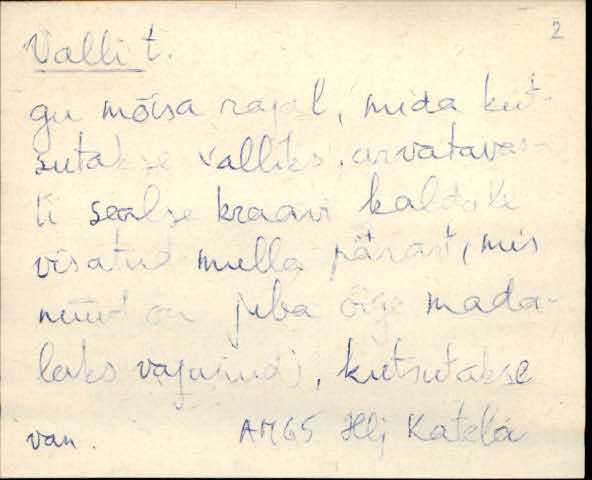 2
Valli t.
gu mõisa rajal, mida kut-
sutakse valliks, arvatavas-
ti sealse kraavi kaldale
visatud mulla pärast, mis
nüüd on juba õige mada-
laks vajunud), kutsutakse
van. AM65 Hlj Katela